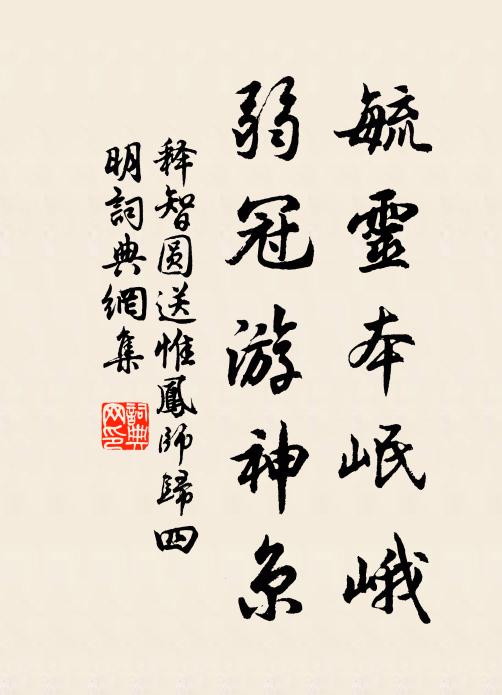 毓靈本岷峨
弱冠游神京
释智圆送惟鳳师歸四
明詞典網集
詞典网印